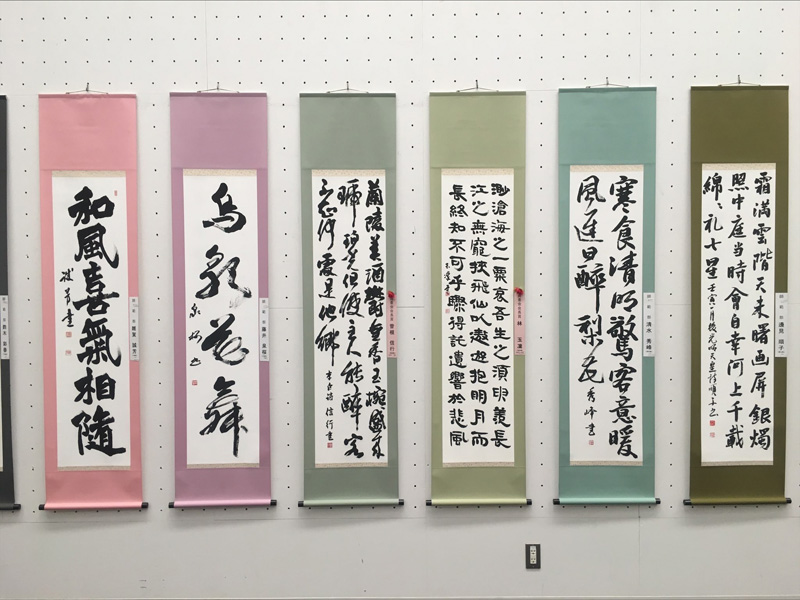 和風喜氣相隨
鳥歌花舞
蘭陵美酒鬱金香玉椀盛来
琥珀光但使主人能酔客
不知何處是他郷 李白詩 信行書
渺滄海之一粟哀吾生之須臾羨長
江之無窮挟飛仙以遨遊抱明月而
長終知不可乎驟得託遺響於悲風
寒食清明驚客意暖
風遅日酔梨花 秀峰書
清水 秀峰
霜満雲階天未曙画屏銀燭
照中庭当時會自幸河上千載
綿々礼七星